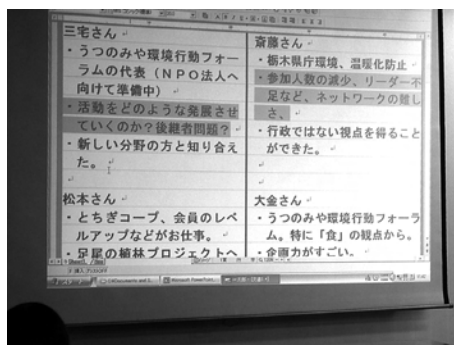 三宅さん
・うつのみや環境行動フォー
ラムの代表（NPO法人へ
向けて準備中）
・活動をどのような発展させ
ていくのか？後継者問題？
・新しい分野の方と知り合え
た。
松本さん
・とちぎコープ、会員のレベ
ルアップなどがお仕事。
・足尾の植林プロジェクトへ
斎藤さん
・栃木県庁環境、温暖化防止
・参加人数の減少、リーダー不
足など、ネットワークの難し
さ、
・行政ではない視点を得ること
ができた。
大金さん
・うつのみや環境行動フォーラ
ム。特に「食」の観点から。
・企画力がすごい。